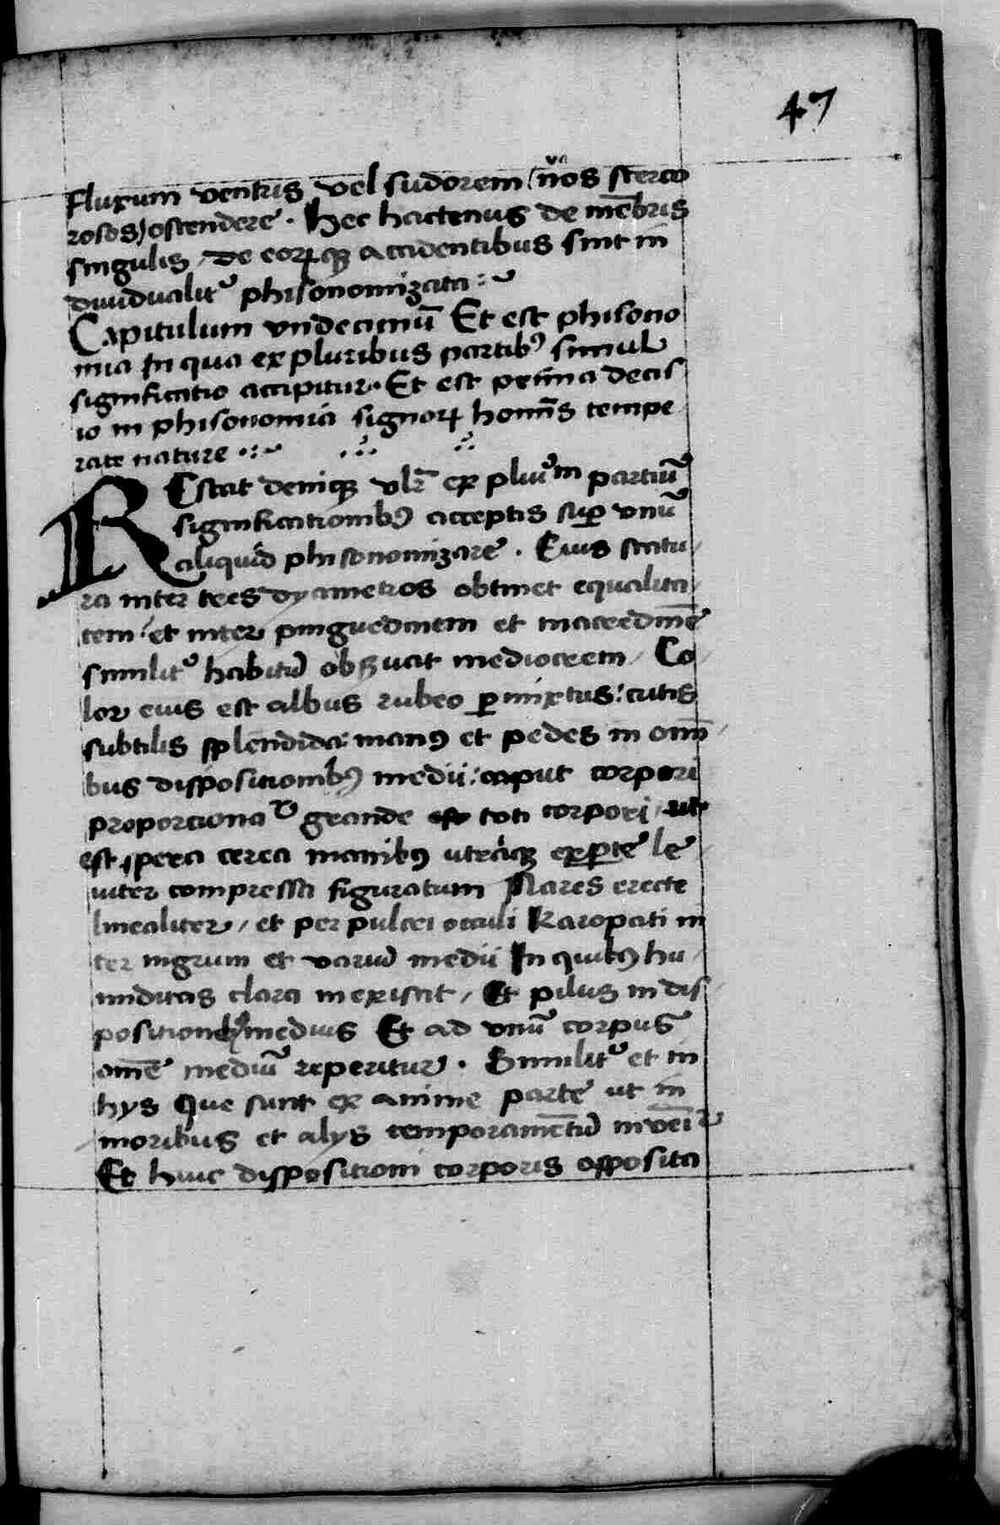 47
fluxum ventris vel sudorem (n̄os sterco
rosos) ostendere. Hec hactenus de mēbris
singulis, de eorūq̄ꝫ accidentibus sint in
diuidualit᷑ phisonomizata :~
Capitulum vndecimū Et est phisono
mia In qua ex pluribus partibꝰ simul
significatio accipitur. Et est prima decis
io in phisonomia signoꝝ homīs tempe
rate nature .:~ .:. .:.
REstat deniqꝫ vlr̄ ex pluriūm partiū
significationibꝰ acceptis suꝑ vnū
aliquid phisonomizare. Eius statu
ra inter tres dyametros obtinet equalita
tem / et inter pinguedinem et macredinē
similit᷑ habitū obẞuat mediocrem / Co
lor eius est albus rubeo ꝑmixtus : cutis
subtilis splendida : manꝰ et pedes in omī
bus dispositionibꝰ medii : caput corpori
proporciona᷑ grande toti corpori / ut
est spera cerea manibꝰ utraq̄ꝫ ex ꝑte le
uiter compressa figuratum Nares erecte
linealiter / et per pulcri occuli Karopati in
ter nigrum et variū medii In quibꝰ hu
miditas clara in existit / Et pilus in dis
positionibꝰ medius Et ad vnū corpus
omē mediū reperitur. Similit᷑ et in
hys que sunt ex anime parte ut in
moribus et alys temporamētū inveni᷑
Et huic dispositioni corporis opposita